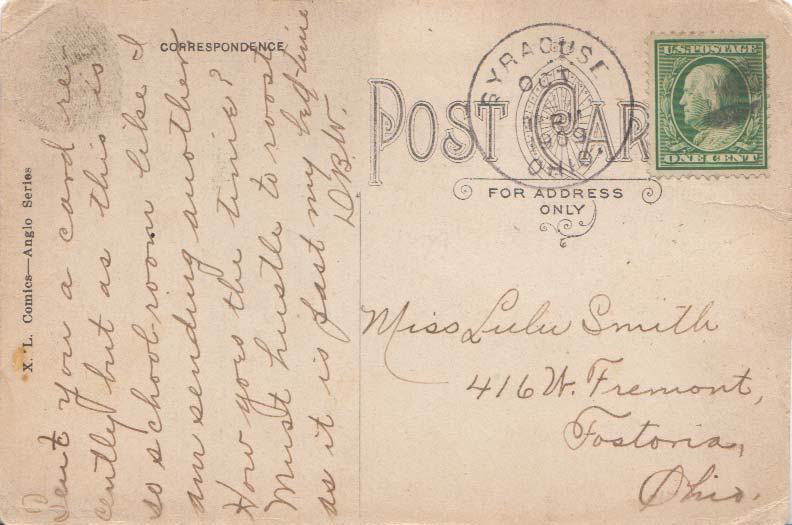 CORRESPONDENCE
X. L. Comics—Anglo Series
Sent you a card re-
cently but as this is
so schoolroom like I
am sending another
How goes the time?
Must hustle to roost
as it is past my bed time
D.B.W.
SYRACUSE
OCT
2
1909
OHIO.
U.S. POSTAGE
ONE CENT
POST CARD
FOR ADDRESS
ONLY
Miss Lulu Smith
416 W. Fremont,
Fostoria,
Ohio.